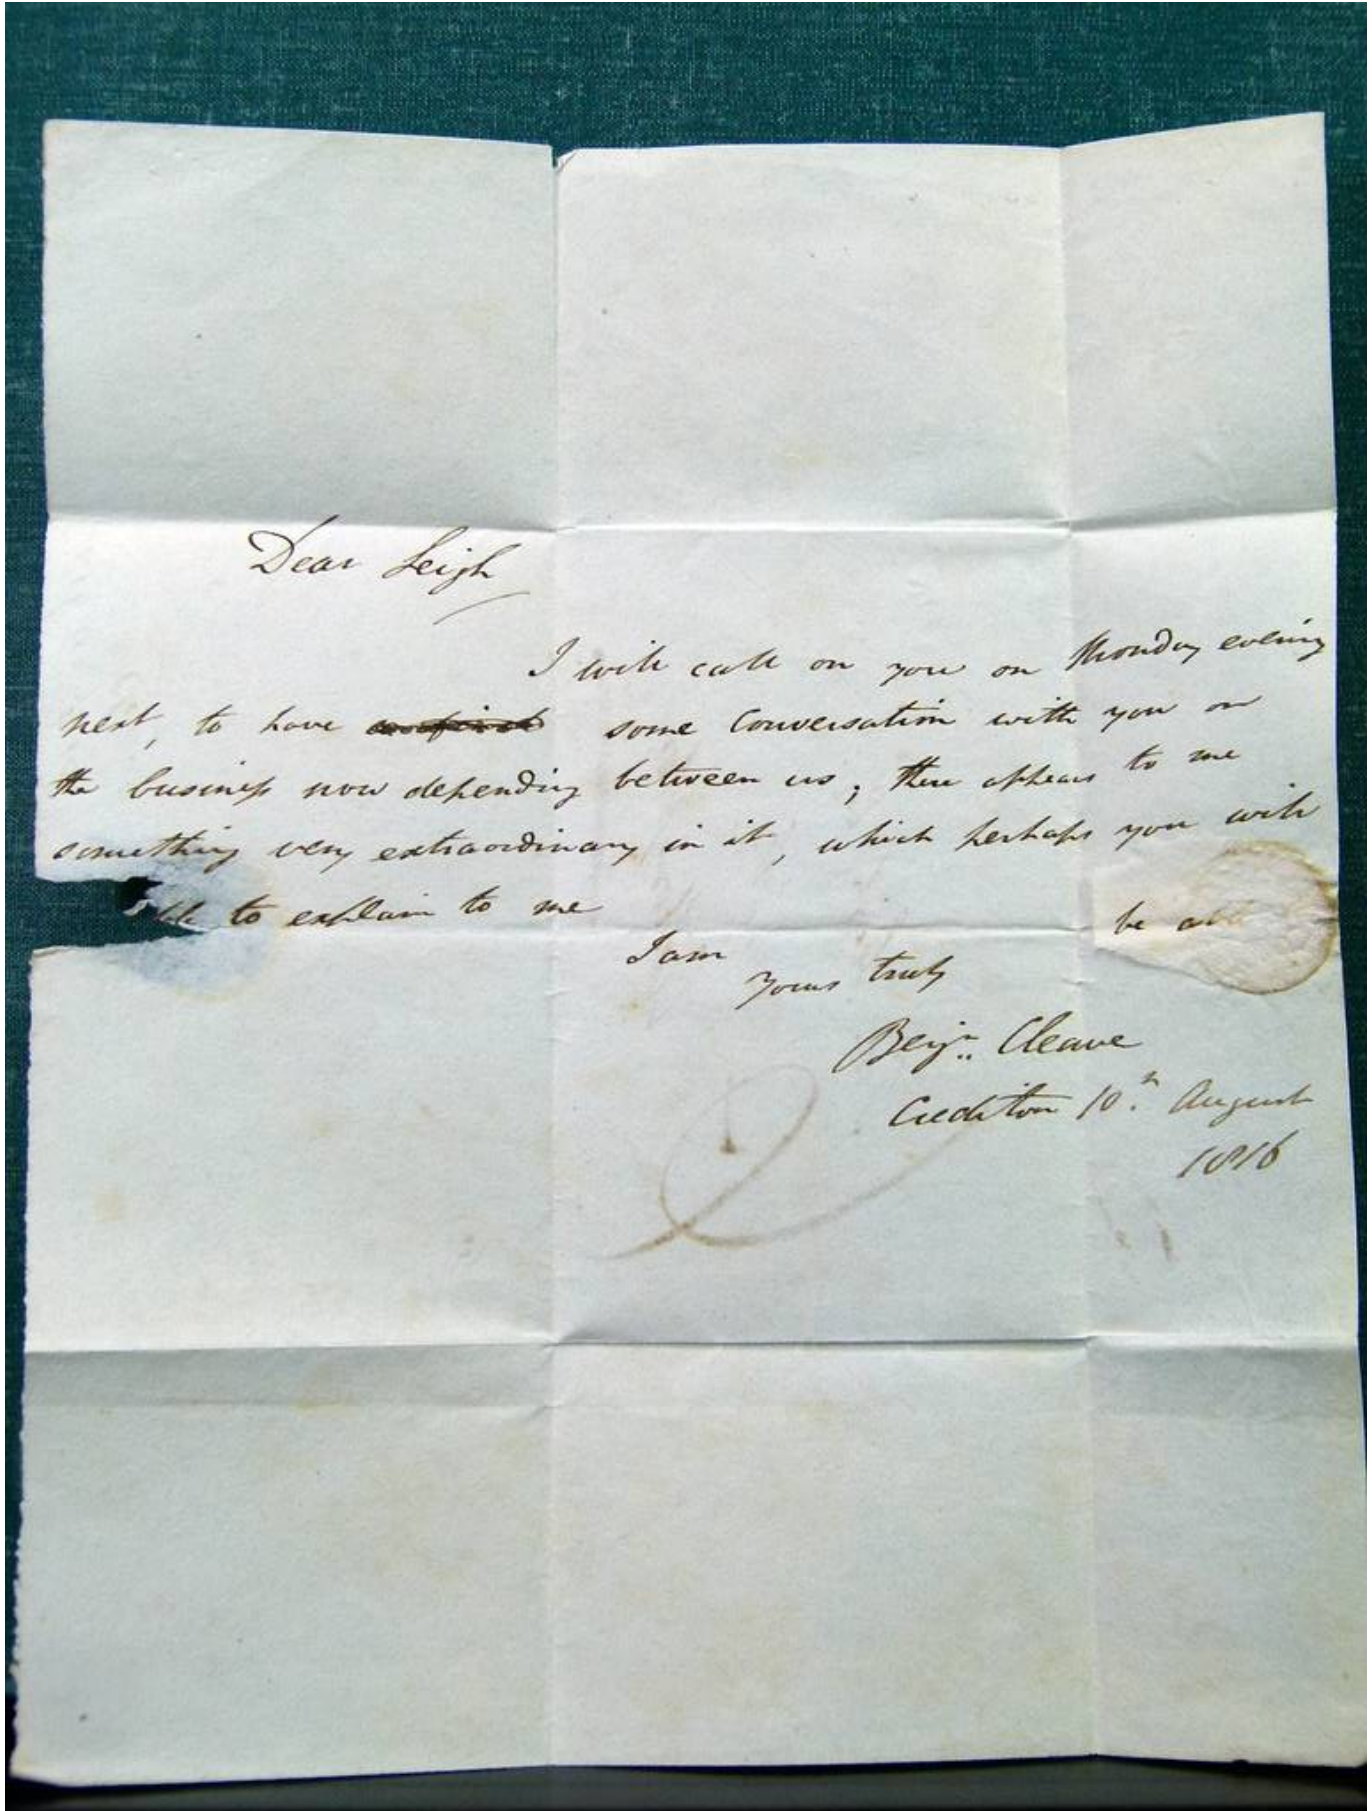 Dear Leigh
I will call on you on Monday evening
next, to have some Conversation with you on
the businefs now depending between us, there appears to me
something very extraordinary in it, which perhaps you will
be able to explain to me
I am
Yours truly
Benjn. Cleave
Crediton 10th August
1816